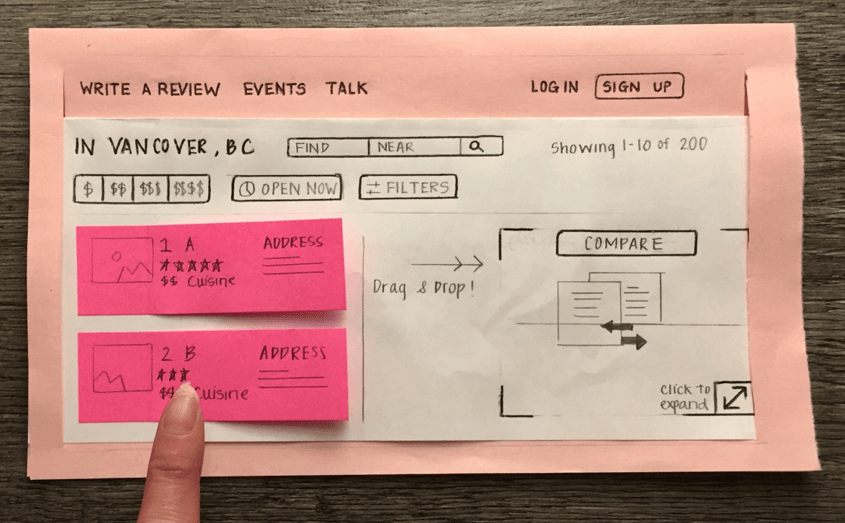 WRITE A REVIEW EVENTS TALK LOG IN SIGN UP
IN VANCOVER, BC FIND NEAR Showing 1-10 of 200
$ $$ $$$ $$$$ OPEN NOW FILTERS
1 A ADDRESS
$$ Cuisine
2 B ADDRESS
Cuisine
Drag & Drop!
COMPARE
Click to
expand